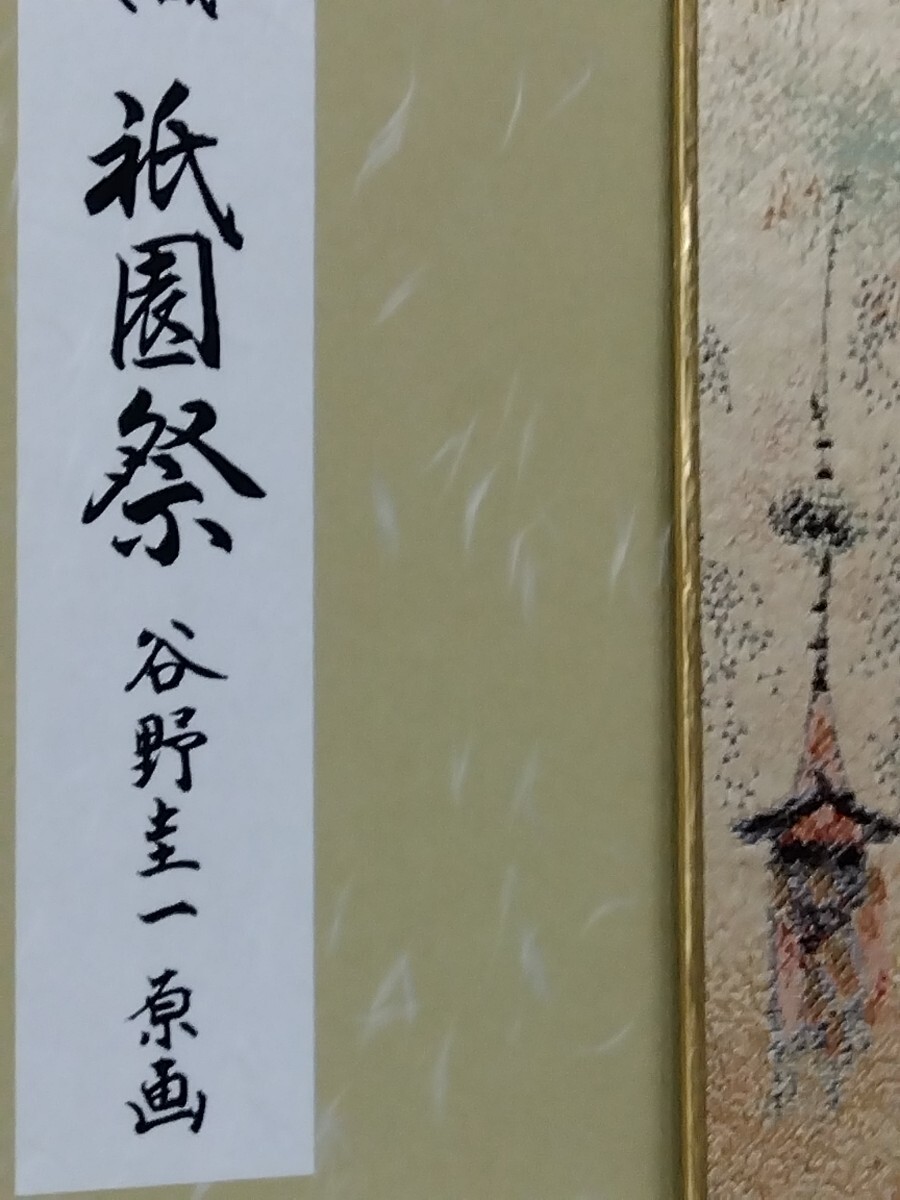 祇園祭 谷野圭一 原画